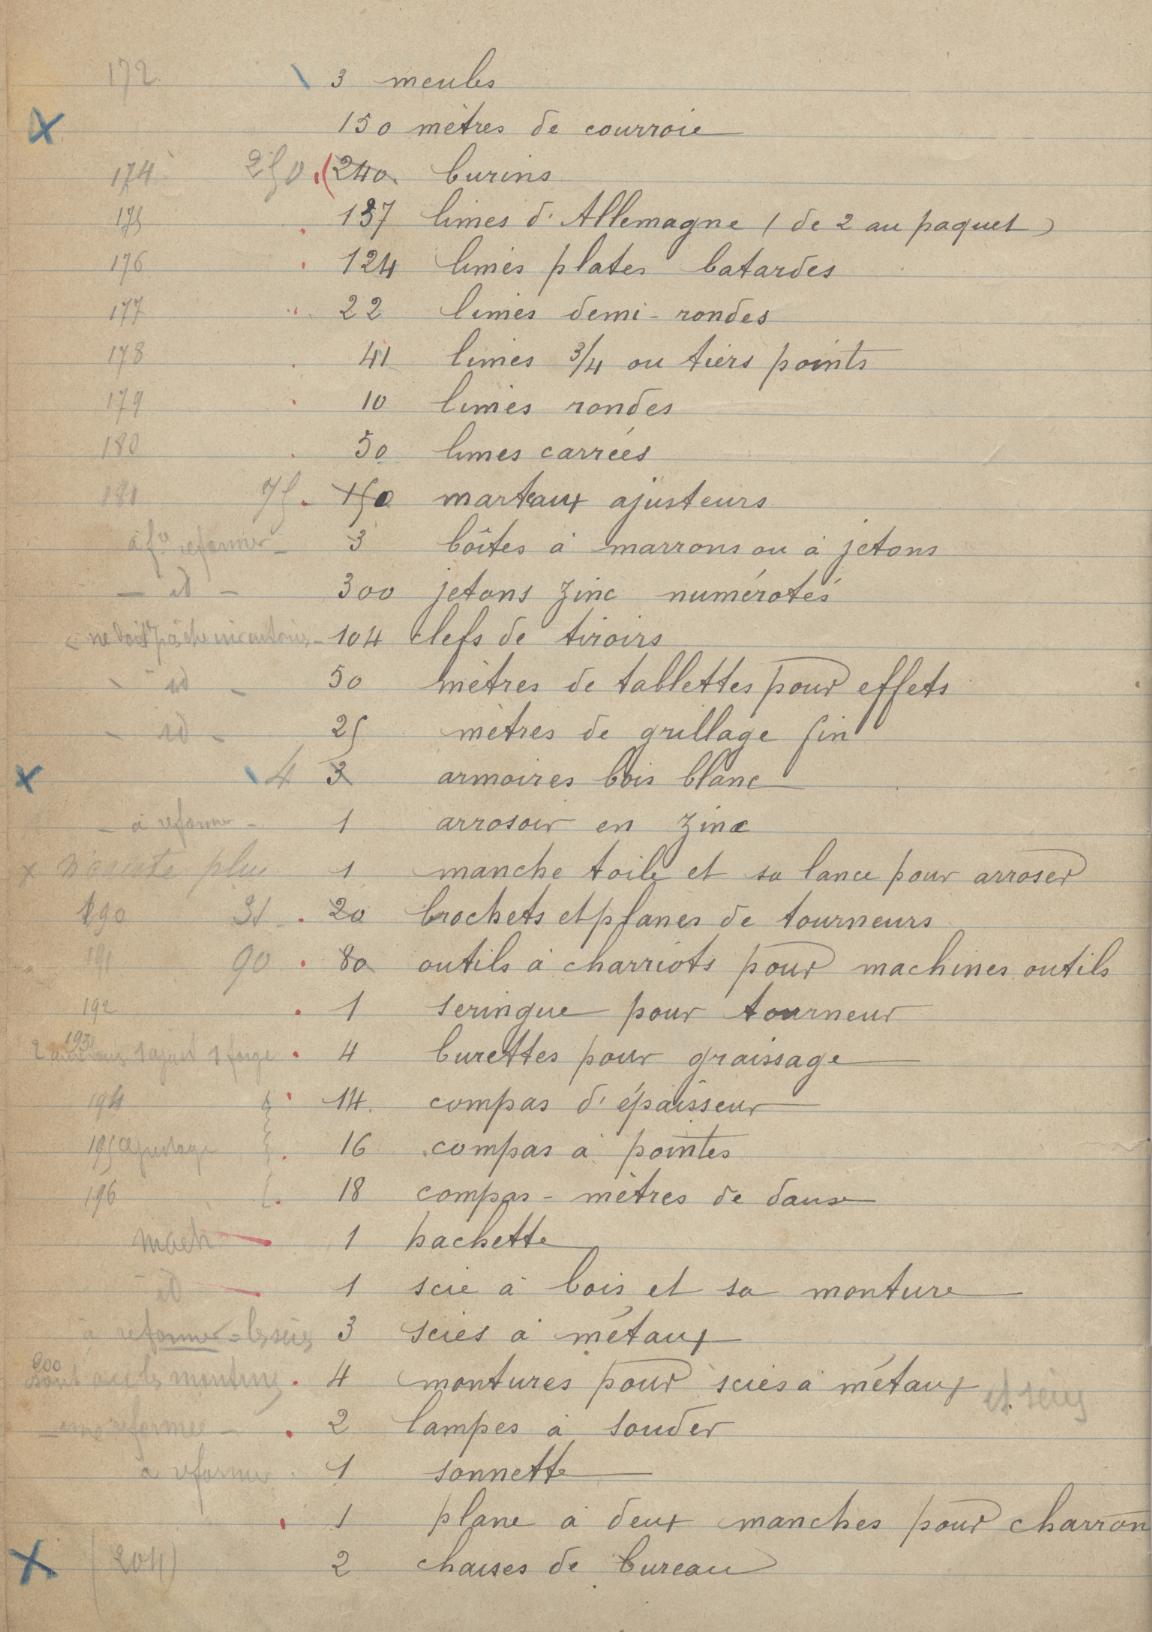 172. \ 3 meules
X 150 mètres de courroie
174 250 . ( 240. burins
175 . 137 limes d'Allemagne ( de 2 au paquet )
176 . 124 limes plates batardes
177 . 22 limes demi-rondes
178 . 41 limes 3/4 ou tiers points
179 . 10 limes rondes
180 . 50 limes carrées
181 75 . 150 marteaux ajusteurs
à reformer - 3 boîtes à marrons ou à jetons
- id - 300 jetons zinc numérotés
104 clefs de tiroirs
- id - 50 mètres de tablettes pour effets
- id - 25 mètres de grillage fin
X \ 4 3 armoires bois blanc
- à reformer - 1 arrosoir en zinc
x N'existe plus 1 manche toile et sa lance pour arroser
190 31 . 20 crochets et planes de tourneurs
191 90 . 80 outils à charriots pour machines outils
192 . 1 seringue pour tourneur
193 1 forge . 4 burettes pour graissage
194 . 14. compas d'épaisseur
195 ajustage . 16 compas à pointes
196 . 18 compas-mètres de danse
mach 1 hachette
id 1 scie à bois et sa monture
à reformer - les scies 3 scies à métaux
200 . 4 montures pour scies à métaux et scies
. 2 lampes à souder
à reformer 1 sonnette
. 1 plane à deux manches pour charron
X (204) 2 chaises de bureau